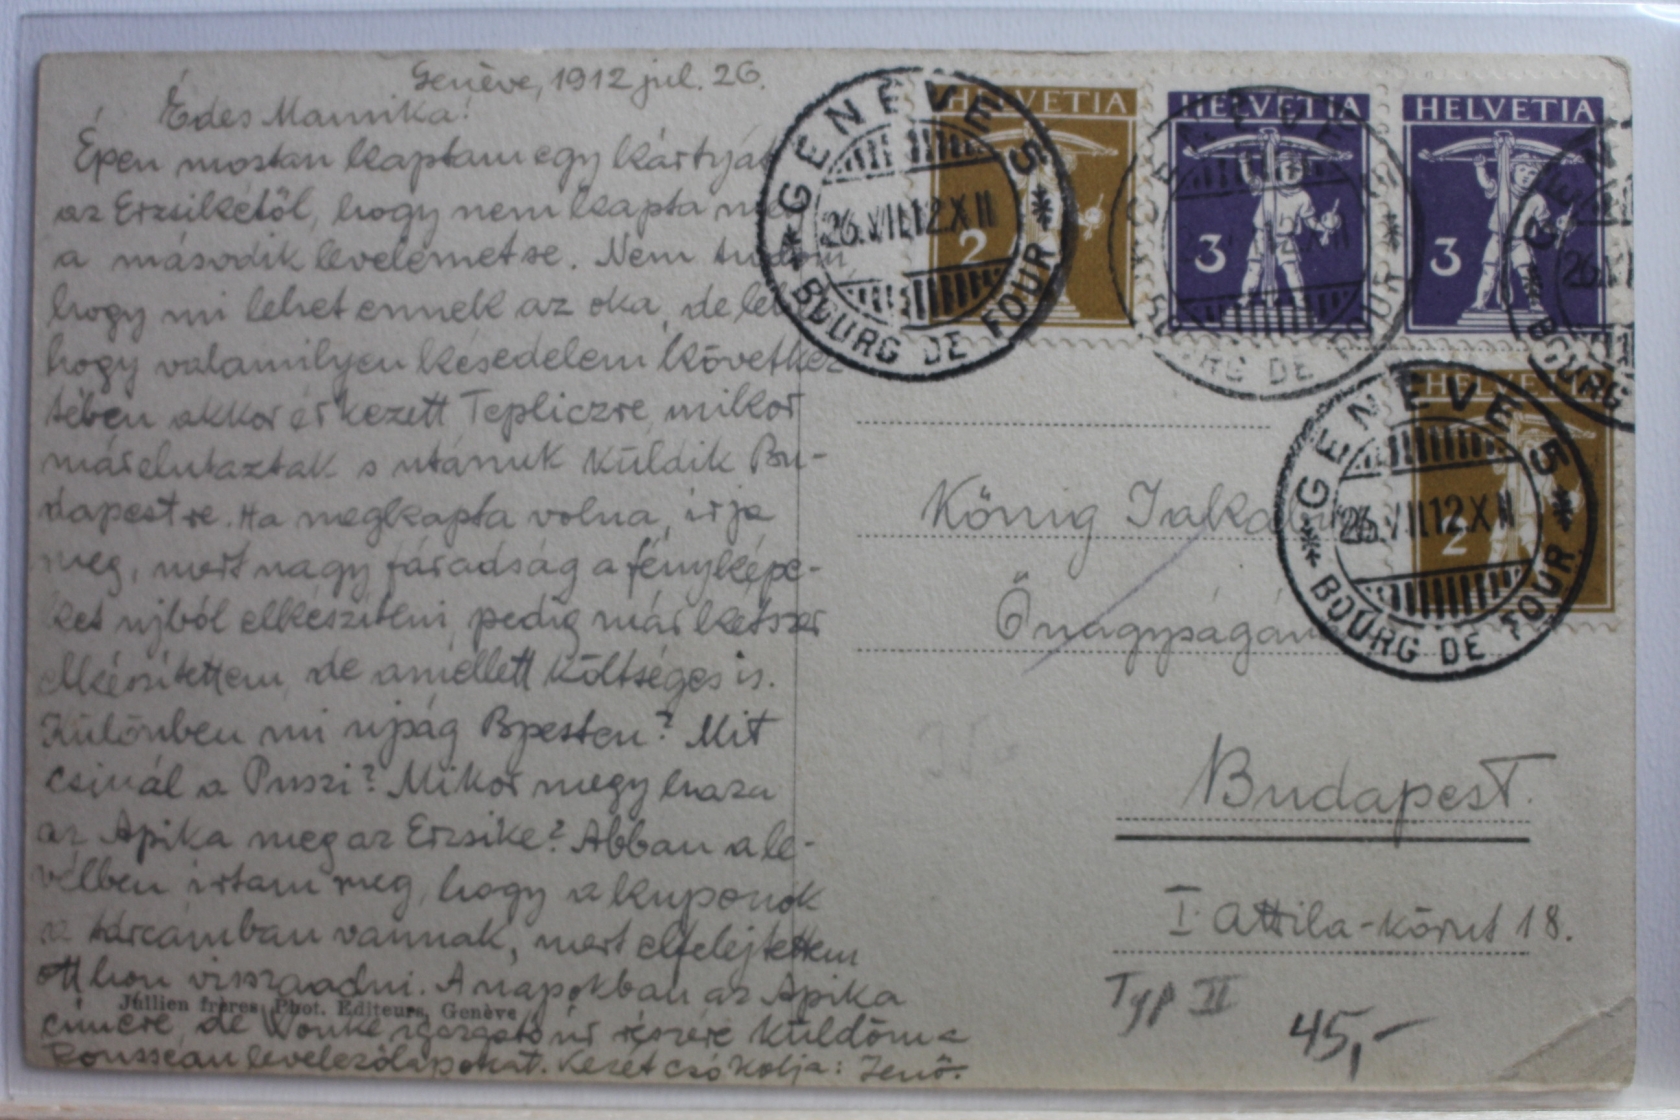 Genève, 1912 jul. 26.
Édes Mamika!
Épen mostan kaptam egy kártyát
az Erzsikétől, hogy nem kapta meg
a második levelemet se. Nem tudom,
hogy mi lehet ennek az oka, de lehet
hogy valamilyen késedelem következ
tében akkor érkezett Tepliczre, mikor
már elutaztak s utánuk küldik Bu-
dapestre. Ha megkapta volna, irja
meg, mert nagy fáradság a fényképe-
ket ujból elkésziteni, pedig már kétszer
elkészitettem, de amellett költséges is.
Különben mi ujság Bpesten? Mit
csinál a Puszi? Mikor megy haza
az Apika meg az Erzsike? Abban a le-
vélben irtam meg, hogy a kuponok
a tárcámban vannak, mert elfelejtettem
otthon visszaadni. A napokban az Apika
cimére, de igazgató úr részére küldöm a
Rousseau levelezőlapokat. Kezét csókolja: Jenő.
Jullien frères, Phot. Editeurs, Genève
HELVETIA
2
HELVETIA
3
HELVETIA
3
HELVETIA
2
GENÈVE 5
26.VII.12.XII
BOURG DE FOUR
GENÈVE 5
26.VII.12.XII
BOURG DE FOUR
König
Őnagyságának
Budapest.
I. Attila-körut 18.
Typ II
45,-